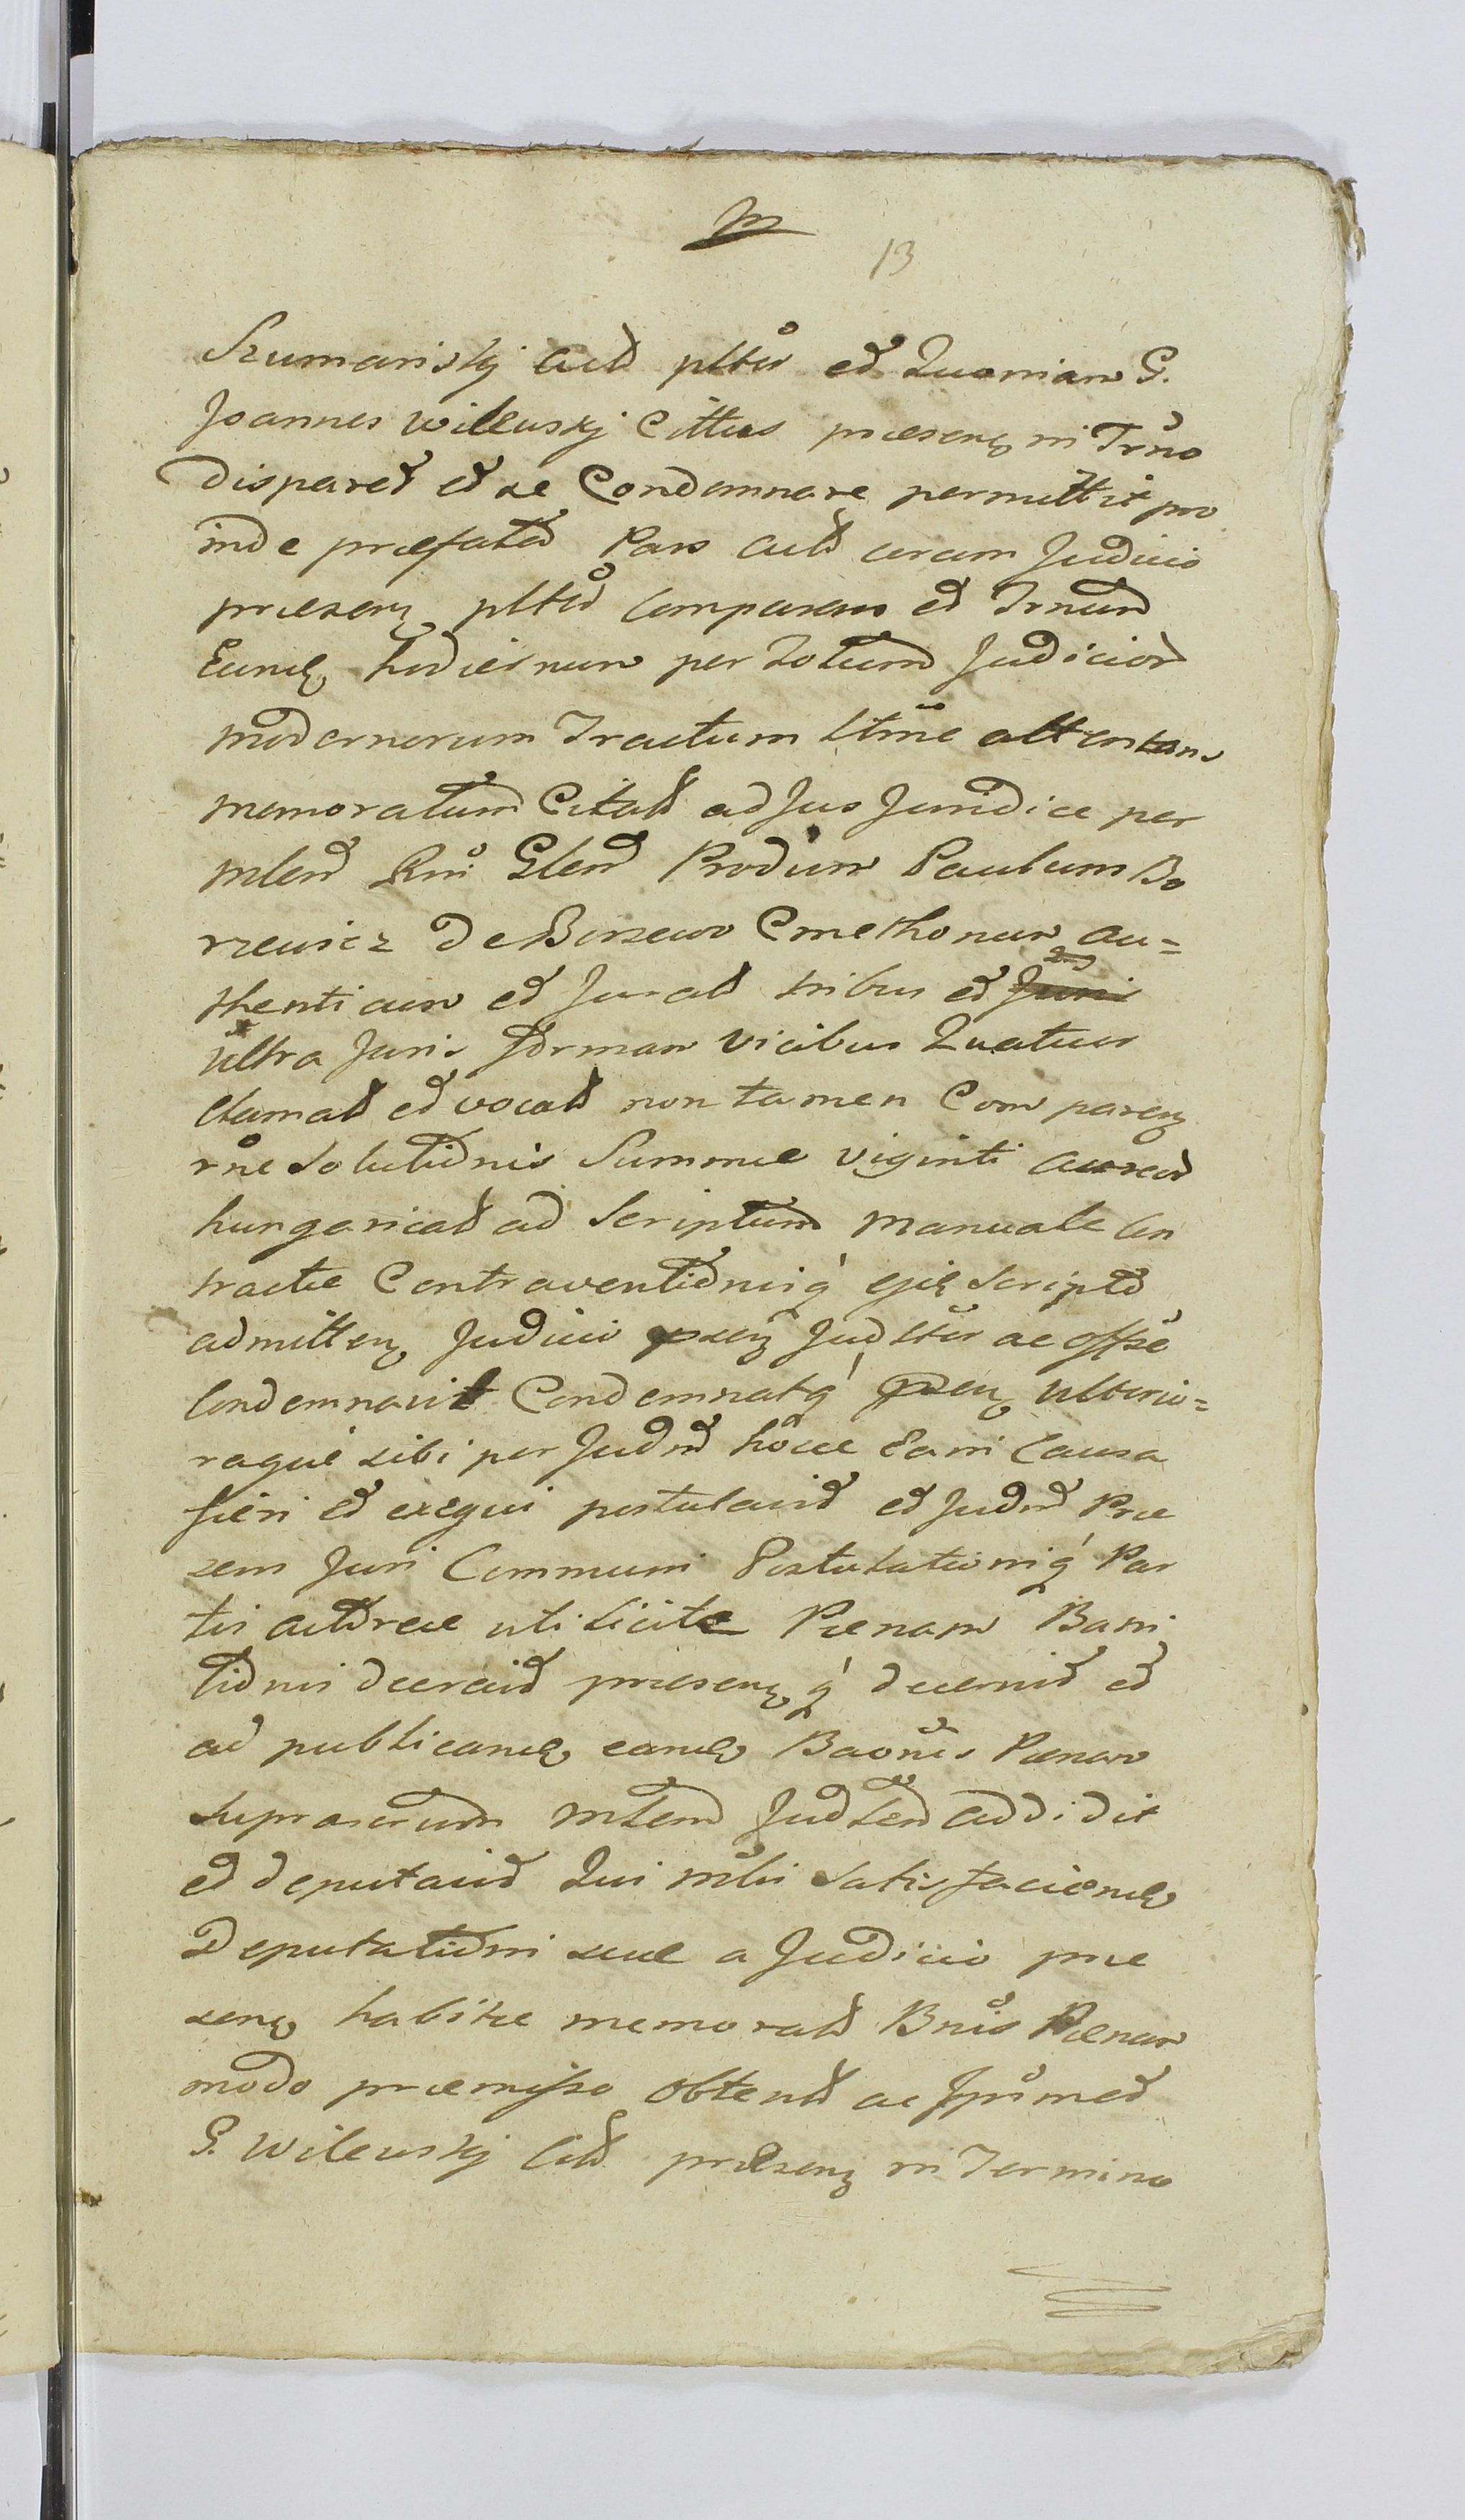 m
13
Szumanskj actt pltr et Quoniam G.
Joannes Wilewskj Cittus praesenz in Trno
disparet et se Condemnare permittit pro
inde praefata Pars actt coram Judicio
praesenz pltr Comparens et Trnum
Eunq hodiernum per totum Judicior
modernorum Tractum ltme attentans
memoratum Citatt ad Jus Juridice per
mlem Rni Glem Produm Paulum Bo
rzewicz De Borzewo Cmethonum au=
thenticum et Juratt tribus et
ultra Juris formam vicibus Quatuor
clamatt et vocatt non tamen Com parenz
rne solutionis Summae viginti aureor
hungaricatt ad Scriptum manuale Con
tractae Contraventionisq ejus Scripto
admittenz Judicio psenz Jud ltr ac offse
Condemnavit Condemnatq psenz ulterio=
raque sibi per Judm hocce Ea in Causa
fieri et exequi postulavit et Judm Prae
sens Juri Communi Postulationiq Par
tis actoreae uti licitae Paenam Bani
tionis decrevit praesenzq decernit et
ad publicanq eanq Baonis Paenam
suprascrum mlem Judlem addidit
et deputavit Qui mlis satisfacienq
Deputationi suae a Judicio prae
senz habitae memoratt Bnis Paenam
modo praemisso obtentt ac Ipsummet
G. Wilewskj Citt praesenz in Termino